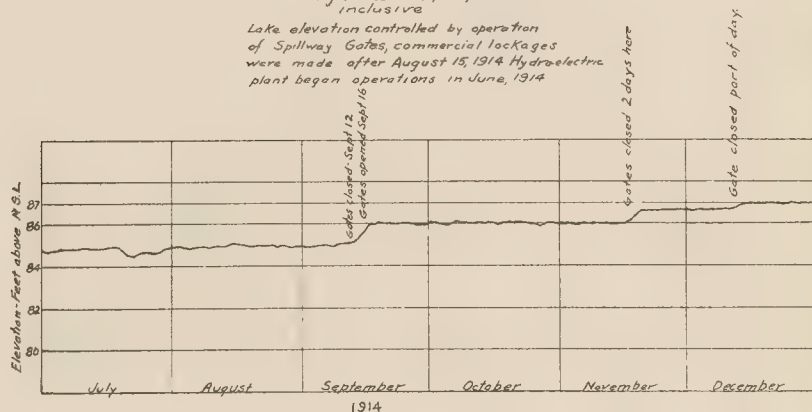 inclusive
Lake elevation controlled by operation
of Spillway Gates, commercial lockages
were made after August 15, 1914 Hydro-electric
plant began operations in June, 1914
Gates closed-Sept 12
Gates opened Sept 16
Gates closed 2 days here
Gate closed part of day.
Elevation-Feet above M.S.L.
87
86
84
82
80
July August September October November December
1914